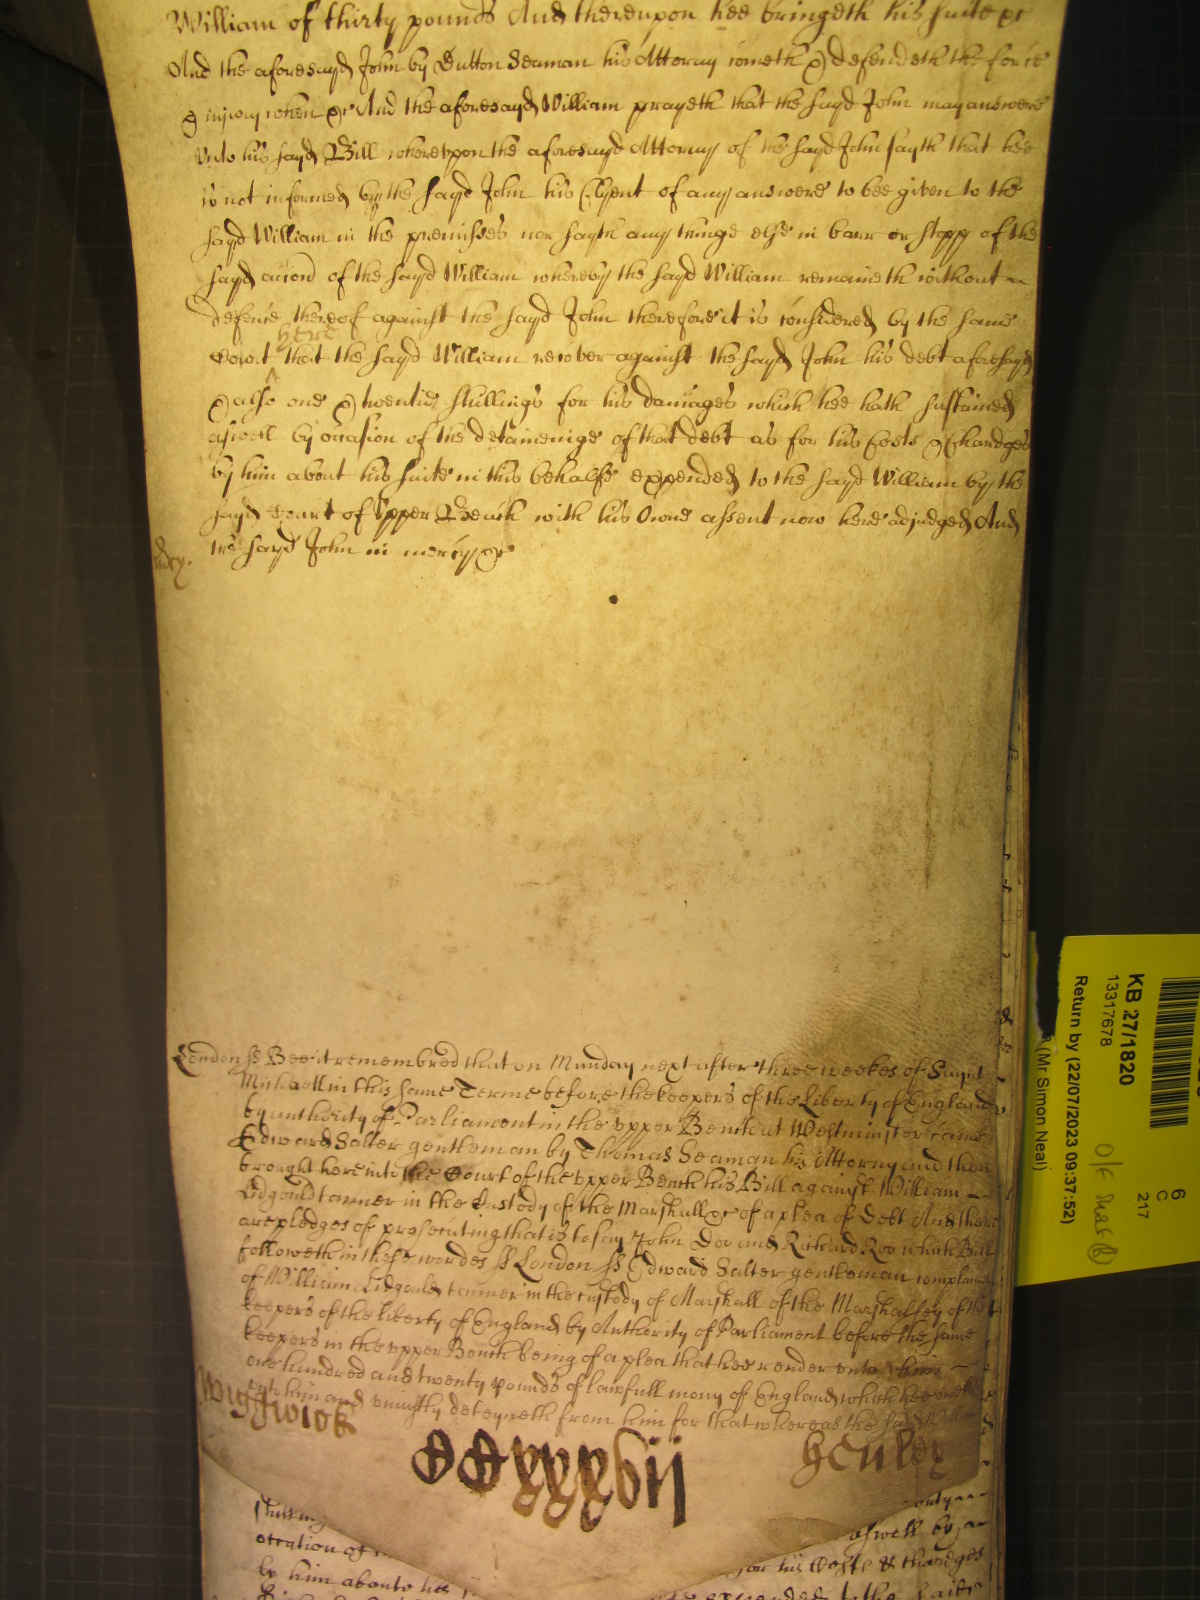 William of thirty pounds And thereupon hee bringeth his suite &c
And the aforesayd John by Dutton Seaman his Attorny cometh & defendeth the force
& injury when &c And the aforesayd William prayeth that the sayd John may answere
unto his sayd Bill whereupon the aforesayd Attorny of the sayd John sayth that hee
is not informed by the sayd John his Clyent of any answere to bee given to the
sayd William in the premisses nor sayth any thinge else in barr or stopp of the
sayd accion of the sayd William whereby the sayd William remaineth without
defence thereof against the sayd John therefore it is considered by the same
here
Court that the sayd William recover against the sayd John his debt aforesayd
& also one & twentie shillings for his damages which hee hath susteined
aswell by occasion of the deteineinge of that debt as for his Costs & Chardges
by him about his suite in this behalfe expended to the sayd William by the
sayd Court of Upper Bench with his Owne assent now here adjudged And
the sayd John in mercy &c
mercy.
London ss Bee it remembred that on Munday next after three weekes of Saynt
Michaell in this same Terme before the keepers of the Liberty of England
by authority of Parliament in the upper Bench at Westminster came
Edward Salter gentleman by Thomas Seaman his Attorny and then
brought here into the Court of the upper Bench his Bill against William
Lidgould tanner in the Custody of the Marshall &c of a plea of Debt And there
are pledges of prosecuting that is to say John Doe and Richard Roo which Bill
followeth in these wordes ss London ss Edward Salter gentleman complaines
of William Lidgould tanner in the custody of Marshall of the Marshalsey of the
keepers of the liberty of England by Authority of Parliament before the same
keepers in the upper Bench being of a plea that hee render unto him
one hundred and twenty pounds of lawfull mony of England which hee oweth
unto him and uniustly deteyneth from him for that whereas the sayd William
Wiggwick
CCxxxvij
Henley
occation of
aswell by
by him aboute his
for his Costs & chardges
expended to the saide
KB 27/1820
13317678
Return by (22/07/2023 09:37:52)
(Mr Simon Neal)
6
C
217